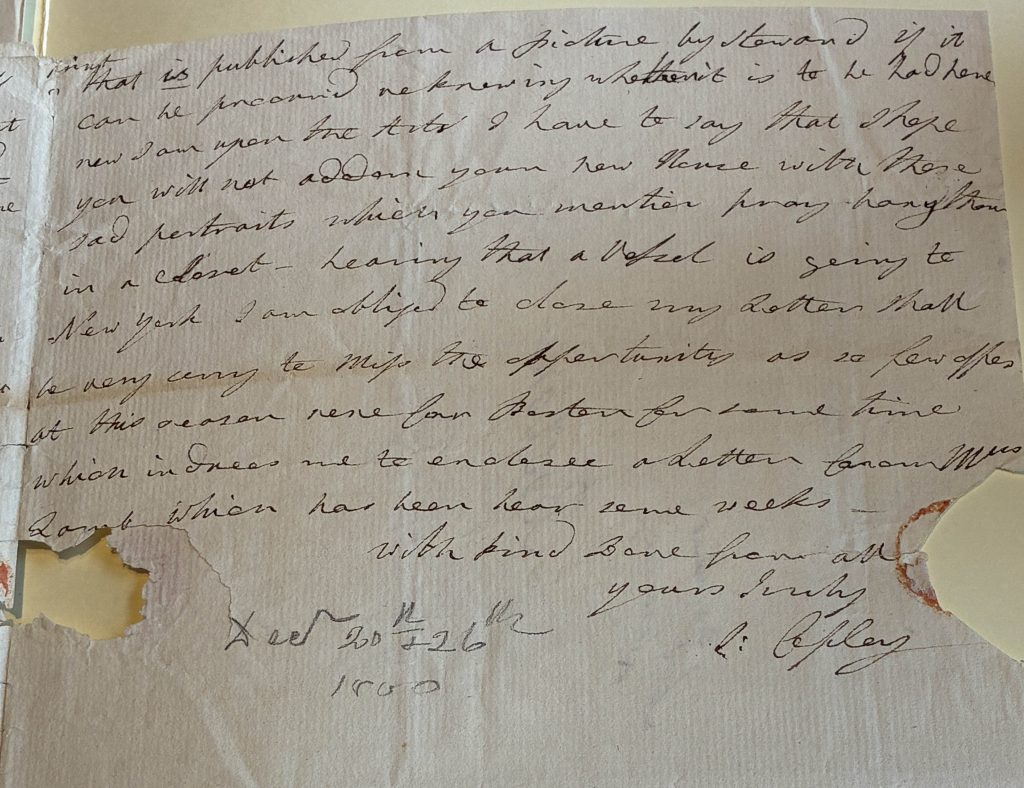 print
that is published from a picture by Steward if it
can be procurd unknowing whether it is to be had here
now I am upon the Arts I have to say that I hope
you will not addorn your new House with these
sad portraits which you mention pray hang them
in a Closet – hearing that a Vessel is going to
New York I am obliged to close my Letter shall
be very sorry to Miss the opportunity as so few offer
at this season here for Boston for some time
which induces me to enclosee a Letter from Mrs
Lamb which has been hear some weeks –
with kind Love from all
yours truly
S: Copley
Decr 20th & 26th
1800